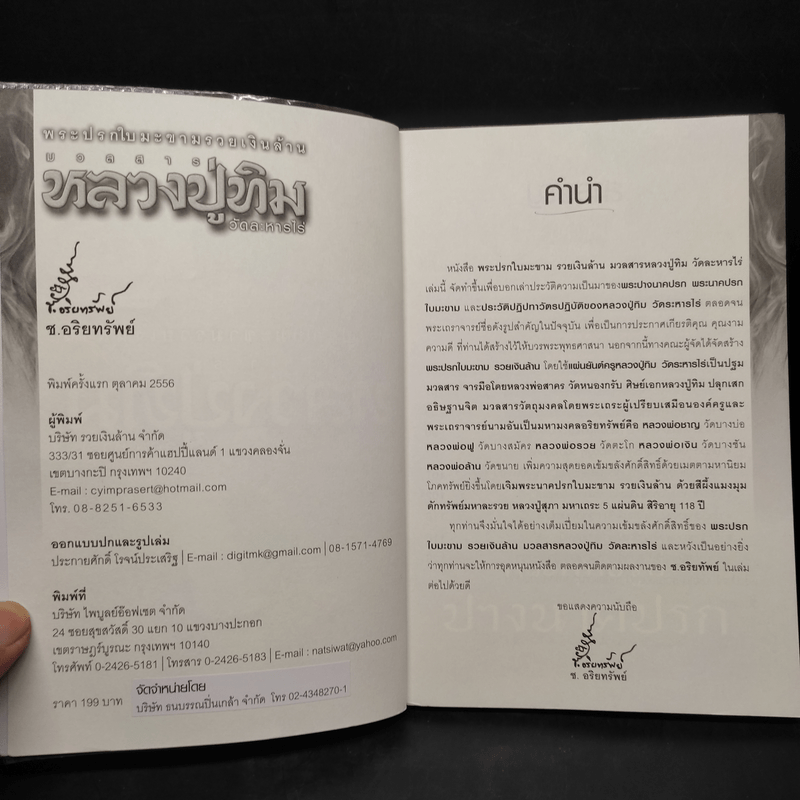 พระปรกใบมะขามรวยเงินล้าน
มวลสาร
หลวงปู่ทิม
วัดละหารไร่
ช.อริยทรัพย์
ช.อริยทรัพย์
พิมพ์ครั้งแรก ตุลาคม 2556
ผู้พิมพ์
บริษัท รวยเงินล้าน จำกัด
333/31 ซอยศูนย์การค้าแฮปปี้แลนด์ 1 แขวงคลองจั่น
เขตบางกะปิ กรุงเทพฯ 10240
E-mail : cyimprasert@hotmail.com
โทร. 08-8251-6533
ออกแบบปกและรูปเล่ม
ประกายศักดิ์ โรจน์ประเสริฐ | E-mail : digitmk@gmail.com | 08-1571-4769
พิมพ์ที่
บริษัท ไพบูลย์อ๊อฟเซต จำกัด
24 ซอยสุขสวัสดิ์ 30 แยก 10 แขวงบางปะกอก
เขตราษฎร์บูรณะ กรุงเทพฯ 10140
โทรศัพท์ 0-2426-5181 | โทรสาร 0-2426-5183 | E-mail : natsiwat@yahoo.com
ราคา 199 บาท
จัดจำหน่ายโดย
บริษัท ธนบรรณปิ่นเกล้า จำกัด โทร 02-4348270-1
คำนำ
หนังสือ พระปรกใบมะขาม รวยเงินล้าน มวลสารหลวงปู่ทิม วัดละหารไร่
เล่มนี้ จัดทำขึ้นเพื่อบอกเล่าประวัติความเป็นมาของพระปางนาคปรก พระนาคปรก
ใบมะขาม และประวัติปฏิปทาวัตรปฏิบัติของหลวงปู่ทิม วัดระหารไร่ ตลอดจน
พระเถราจารย์ชื่อดังรูปสำคัญในปัจจุบัน เพื่อเป็นการประกาศเกียรติคุณ คุณงาม
ความดี ที่ท่านได้สร้างไว้ให้บวรพระพุทธศาสนา นอกจากนี้ทางคณะผู้จัดได้จัดสร้าง
พระปรกใบมะขาม รวยเงินล้าน โดยใช้แผ่นยันต์ครูหลวงปู่ทิม วัดระหารไร่เป็นปฐม
มวลสาร จารมือโดยหลวงพ่อสาคร วัดหนองกรับ ศิษย์เอกหลวงปู่ทิม ปลุกเสก
อธิษฐานจิต มวลสารวัตถุมงคลโดยพระเถระผู้เปรียบเสมือนองค์ครูและ
พระเถราจารย์นามอันเป็นมหามงคลอริยทรัพย์คือ หลวงพ่อชาญ วัดบางบ่อ
หลวงพ่อฟู วัดบางสมัคร หลวงพ่อรวย วัดตะโก หลวงพ่อเงิน วัดบางซัน
หลวงพ่อล้าน วัดขนาย เพิ่มความสุดยอดเข้มขลังศักดิ์สิทธิ์ด้วยเมตตามหานิยม
โภคทรัพย์ยิ่งขึ้นโดยเจิมพระนาคปรกใบมะขาม รวยเงินล้าน ด้วยสีผึ้งแมงมุม
ดักทรัพย์มหาละรวย หลวงปู่สุภา มหาเถระ 5 แผ่นดิน สิริอายุ 118 ปี
ทุกท่านจึงมั่นใจได้อย่างเต็มเปี่ยมในความเข้มขลังศักดิ์สิทธิ์ของ พระปรก
ใบมะขาม รวยเงินล้าน มวลสารหลวงปู่ทิม วัดละหารไร่ และหวังเป็นอย่างยิ่ง
ว่าทุกท่านจะให้การอุดหนุนหนังสือ ตลอดจนติดตามผลงานของ ช.อริยทรัพย์ ในเล่ม
ต่อไปด้วยดี
ขอแสดงความนับถือ
ช.อริยทรัพย์
ช. อริยทรัพย์